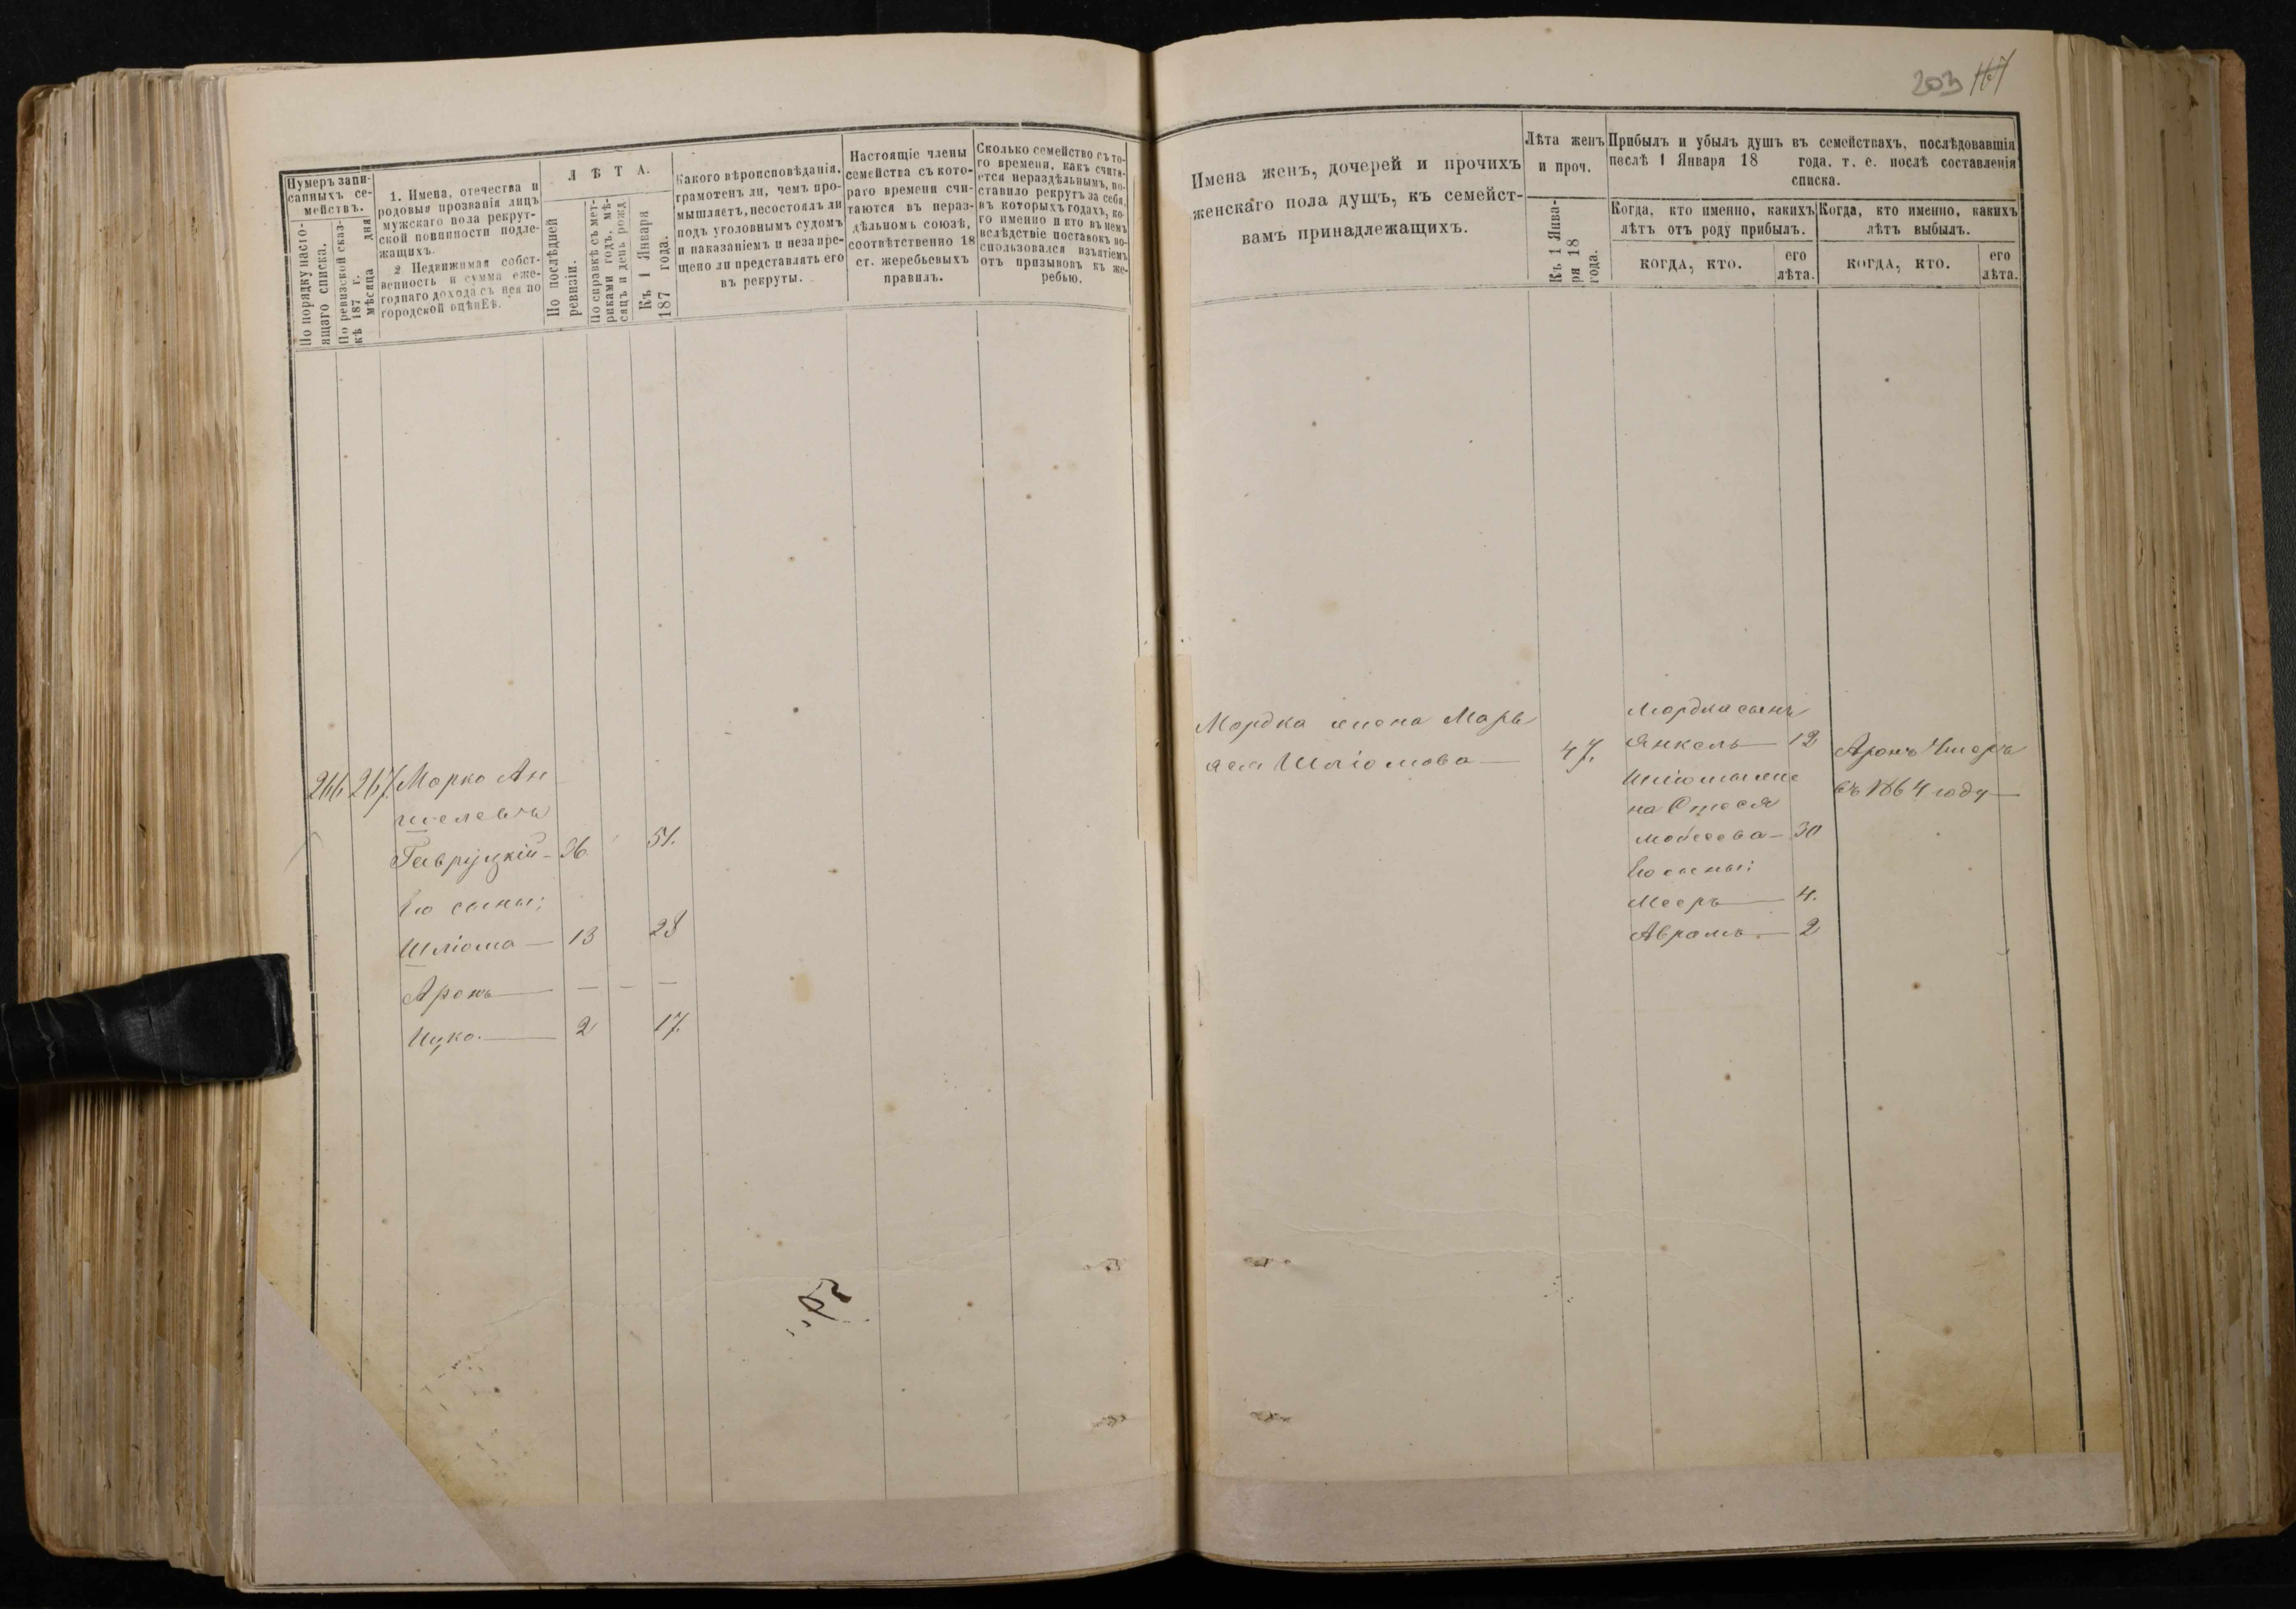 203 167
Нумеръ запи-
санныхъ се-
мействъ.
По порядку насто-
ящаго списка.
По ревизской сказ-
кѣ 187 г. дня
мѣсяца
1. Имена, отечества и
родовыя прозванія лицъ
мужскаго пола рекрут-
ской повинности подле-
жащихъ.
2 Недвижимая собст-
венность и сумма еже-
годнаго дохода съ нея по
городской оцѣнЕѣ.
ЛѢТА.
По послѣдней
ревизіи.
По справкѣ съ мет-
риками годъ, мѣ-
сяцъ и день рожд
Къ 1 Января
187 года.
Какого вѣроисповѣданія,
грамотенъ ли, чемъ про-
мышляетъ, несостоялъ ли
подъ уголовнымъ судомъ
и наказаніемъ и незапре-
щено ли представлять его
въ рекруты.
Настоящіе члены
семейства съ кото-
раго времени счи-
таются въ нераз-
дѣльномъ союзѣ,
соотвѣтственно 18
ст. жеребьевыхъ
правилъ.
Сколько семейство съ то-
го времени, какъ счита-
ется нераздѣльнымъ, по-
ставило рекрутъ за себя,
въ которыхъ годахъ, ко-
го именно и кто въ немъ
вслѣдствіе поставокъ во-
спользовался взъятіемъ
отъ призывовъ къ же-
ребью.
266 267. Морко Ан
шелевъ
Гавруцкій 36 51.
Его сыны:
Шліома 13 28
Аронъ — — —
Ицко. 2 17.
Имена женъ, дочерей и прочихъ
женскаго пола душъ, къ семейст-
вамъ принадлежащихъ.
Лѣта женъ
и проч.
Къ 1 Янва-
ря 18
года.
Прибылъ и убылъ душъ въ семействахъ, послѣдовавшія
послѣ 1 Января 18 года, т. е. послѣ составленія
списка.
Когда, кто именно, какихъ
лѣтъ отъ роду прибылъ.
КОГДА, КТО.
его
лѣта.
Когда, кто именно, какихъ
лѣтъ выбылъ.
КОГДА, КТО.
его
лѣта.
Мордка жена Марь
яся Шліомова 47.
Мордка сынъ
Янкель 12
Шліомы же
на
Мовсеева 30
Его сыны:
Мееръ 4.
Абрамъ 2
Аронъ Умеръ
въ 1864 году